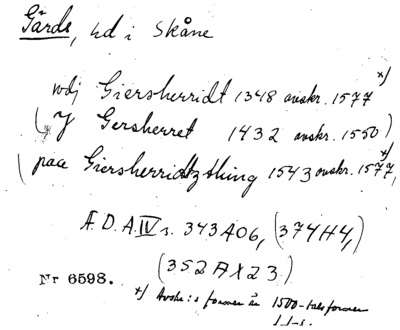 Gärds, hd i Skåne
udj Giersherridt 1348 avskr. 1577 x)
(J Gersherret 1432 avskr. 1550)
(paa Giersherridtz thing 1543 avskr. 1577, x)
Æ.D.A.IV s. 343 A06, (374 H4,)
(352 A X23.)
Nr 6598.
x) Avskr:s former är 1500-tals former